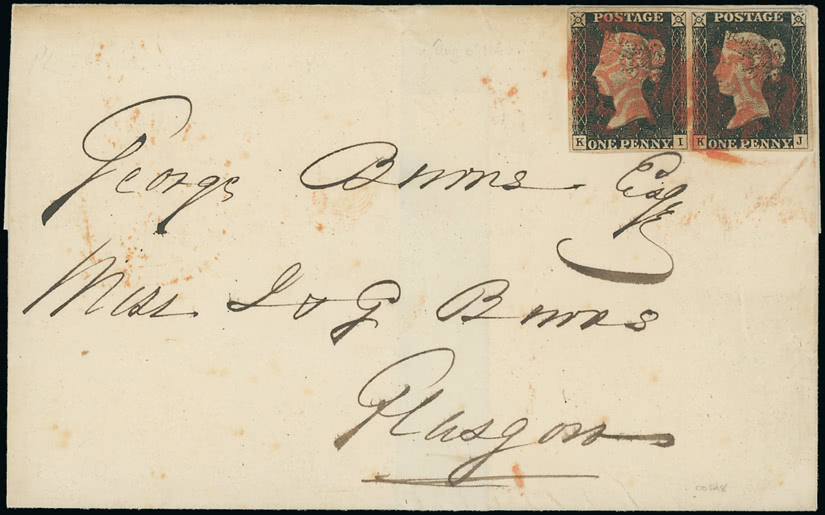 POSTAGE POSTAGE
K ONE PENNY I K ONE PENNY J
George Burns Esqr
Messrs J & G Burns
Glasgow